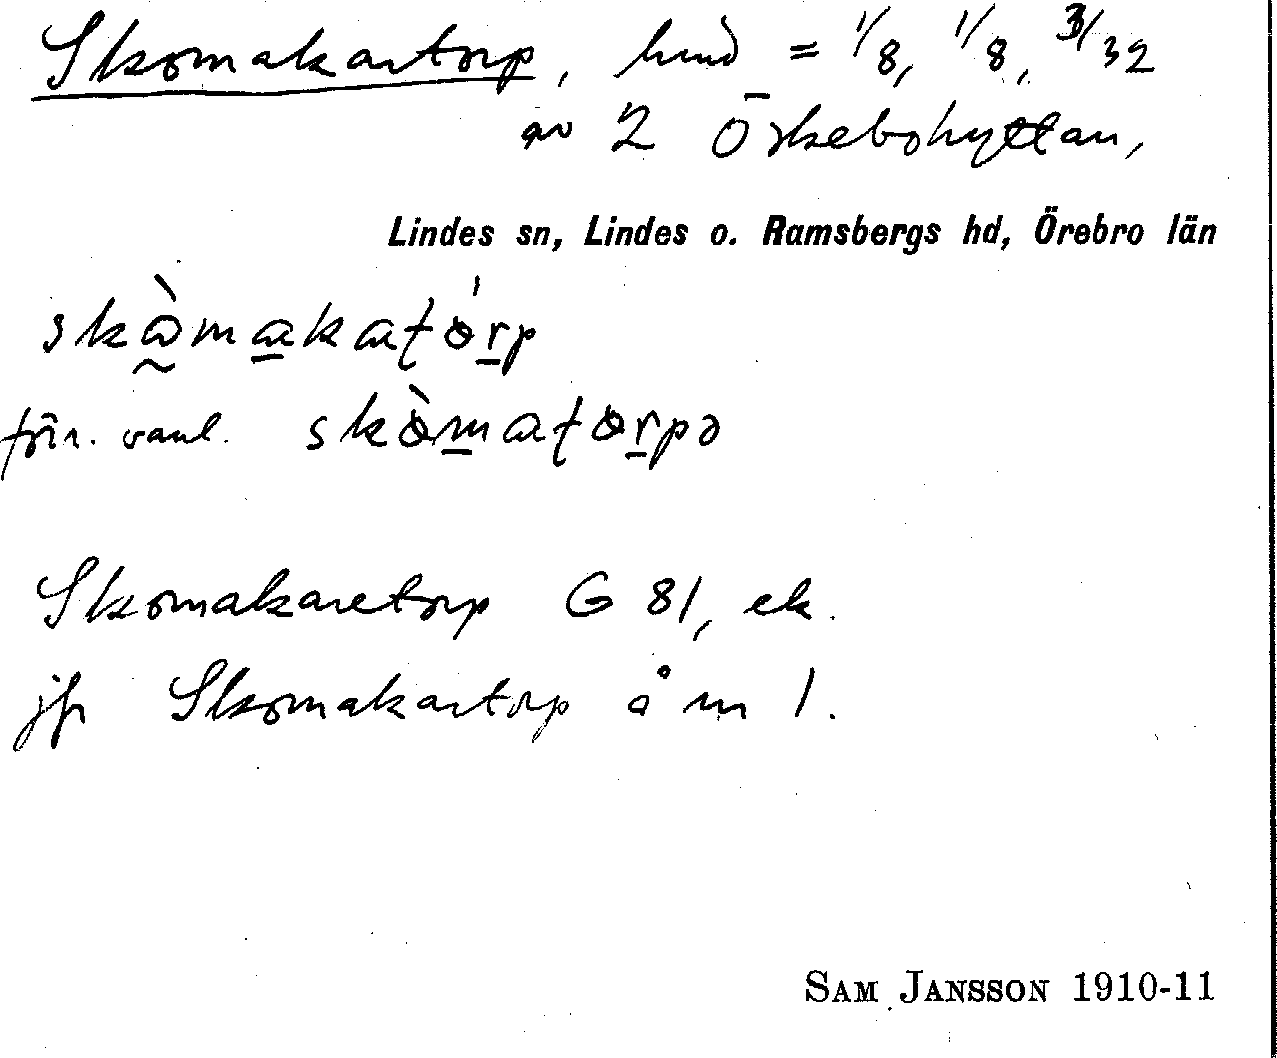 Skomakartorp, hmd = 1/8, 1/8, 3/32
av 2 Öskebohyttan,
Lindes sn, Lindes o. Ramsbergs hd, Örebro län
skòmakatórp
förr. vanl. skòmatorpə
Skomakaretorp G 81, ek.
jfr Skomakartorp å nr 1.
SAM JANSSON 1910-11